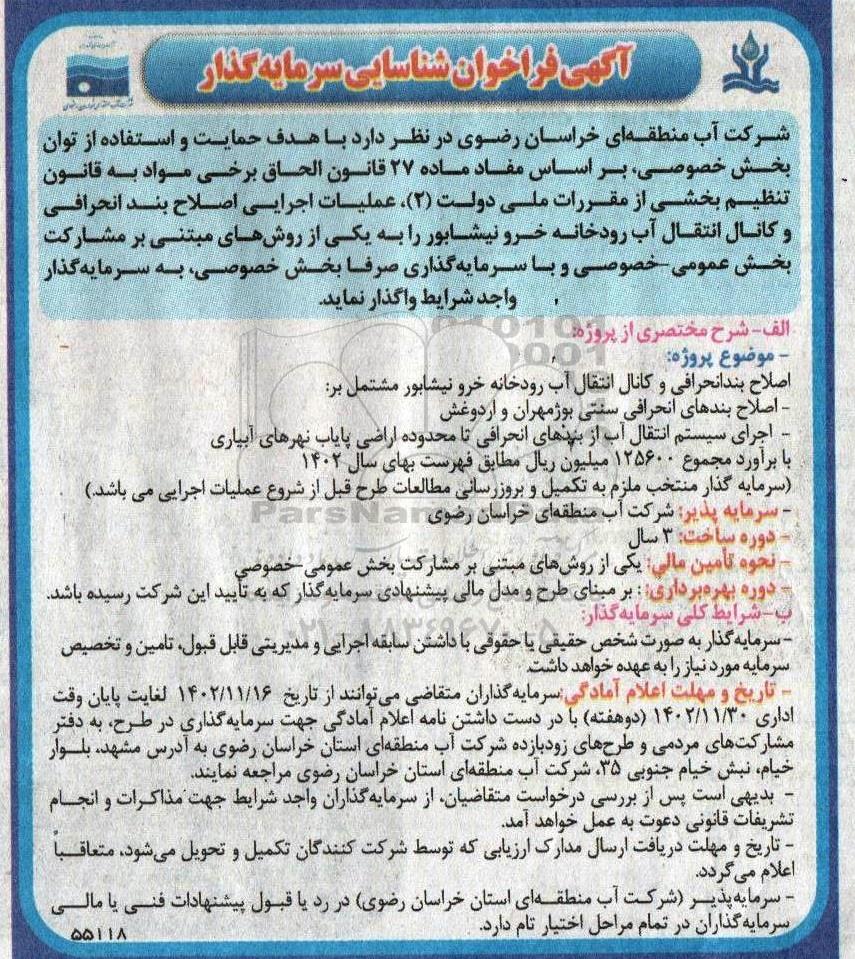 آگهی فراخوان شناسایی سرمایه‌گذار
شرکت آب منطقه‌ای خراسان رضوی در نظر دارد با هدف حمایت و استفاده از توان
بخش خصوصی، بر اساس مفاد ماده ۲۷ قانون الحاق برخی مواد به قانون
تنظیم بخشی از مقررات ملی دولت (۲)، عملیات اجرایی اصلاح بند انحرافی
و کانال انتقال آب رودخانه خرو نیشابور را به یکی از روش‌های مبتنی بر مشارکت
بخش عمومی-خصوصی و با سرمایه‌گذاری صرفا بخش خصوصی، به سرمایه‌گذار
واجد شرایط واگذار نماید.
الف- شرح مختصری از پروژه:
- موضوع پروژه:
اصلاح بندانحرافی و کانال انتقال آب رودخانه خرو نیشابور مشتمل بر:
- اصلاح بندهای انحرافی سنتی بوژمهران و اردوغش
- اجرای سیستم انتقال آب از بندهای انحرافی تا محدوده اراضی پایاب نهرهای آبیاری
با برآورد مجموع ۱۲۵۶۰۰ میلیون ریال مطابق فهرست بهای سال ۱۴۰۲
(سرمایه گذار منتخب ملزم به تکمیل و بروزرسانی مطالعات طرح قبل از شروع عملیات اجرایی می باشد.)
- سرمایه پذیر: شرکت آب منطقه‌ای خراسان رضوی
- دوره ساخت: ۳ سال
- نحوه تأمین مالی: یکی از روش‌های مبتنی بر مشارکت بخش عمومی-خصوصی
- دوره بهره‌برداری: : بر مبنای طرح و مدل مالی پیشنهادی سرمایه‌گذار که به تأیید این شرکت رسیده باشد.
ب- شرایط کلی سرمایه‌گذار:
- سرمایه‌گذار به صورت شخص حقیقی یا حقوقی با داشتن سابقه اجرایی و مدیریتی قابل قبول، تامین و تخصیص
سرمایه مورد نیاز را به عهده خواهد داشت.
- تاریخ و مهلت اعلام آمادگی: سرمایه‌گذاران متقاضی می‌توانند از تاریخ ۱۴۰۲/۱۱/۱۶ لغایت پایان وقت
اداری ۱۴۰۲/۱۱/۳۰ (دوهفته) با در دست داشتن نامه اعلام آمادگی جهت سرمایه‌گذاری در طرح، به دفتر
مشارکت‌های مردمی و طرح‌های زودبازده شرکت آب منطقه‌ای استان خراسان رضوی به آدرس مشهد، بلوار
خیام، نبش خیام جنوبی ۳۵، شرکت آب منطقه‌ای استان خراسان رضوی مراجعه نمایند.
- بدیهی است پس از بررسی درخواست متقاضیان، از سرمایه‌گذاران واجد شرایط جهت مذاکرات و انجام
تشریفات قانونی دعوت به عمل خواهد آمد.
- تاریخ و مهلت دریافت ارسال مدارک ارزیابی که توسط شرکت کنندگان تکمیل و تحویل می‌شود، متعاقباً
اعلام می‌گردد.
- سرمایه‌پذیر (شرکت آب منطقه‌ای استان خراسان رضوی) در رد یا قبول پیشنهادات فنی یا مالی
سرمایه‌گذاران در تمام مراحل اختیار تام دارد.
۵۵۱۱۸